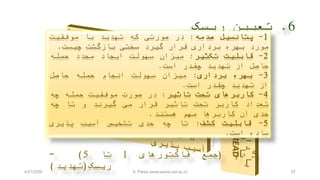 6. تعیین ریسک
1- پتانسیل صدمه: در صورتی که تهدید با موفقیت
مورد بهره برداری قرار گیرد سختی بازگشت چیست.
2- قابلیت تکثیر: میزان سهولت ایجاد مجدد حمله
حاصل از تهدید چقدر است.
3- بهره برداری: میزان سهولت انجام حمله حاصل
از تهدید چقدر است.
4- کاربرهای تحت تاثیر: در صورت موفقیت حمله چه
تعداد کاربر تحت تاثیر قرار می گیرند و تا چه
حدی آن کاربرها مهم هستند.
5- قابلیت کشف: تا چه حدی تشخیص آسیب پذیری
ساده است.
آسیب پذیری
READ
(جمع فاکتورهای 1 تا 5) =
ریسک(تهدید)
S. Parsa (www.parsa.iust.ac.ir)
67